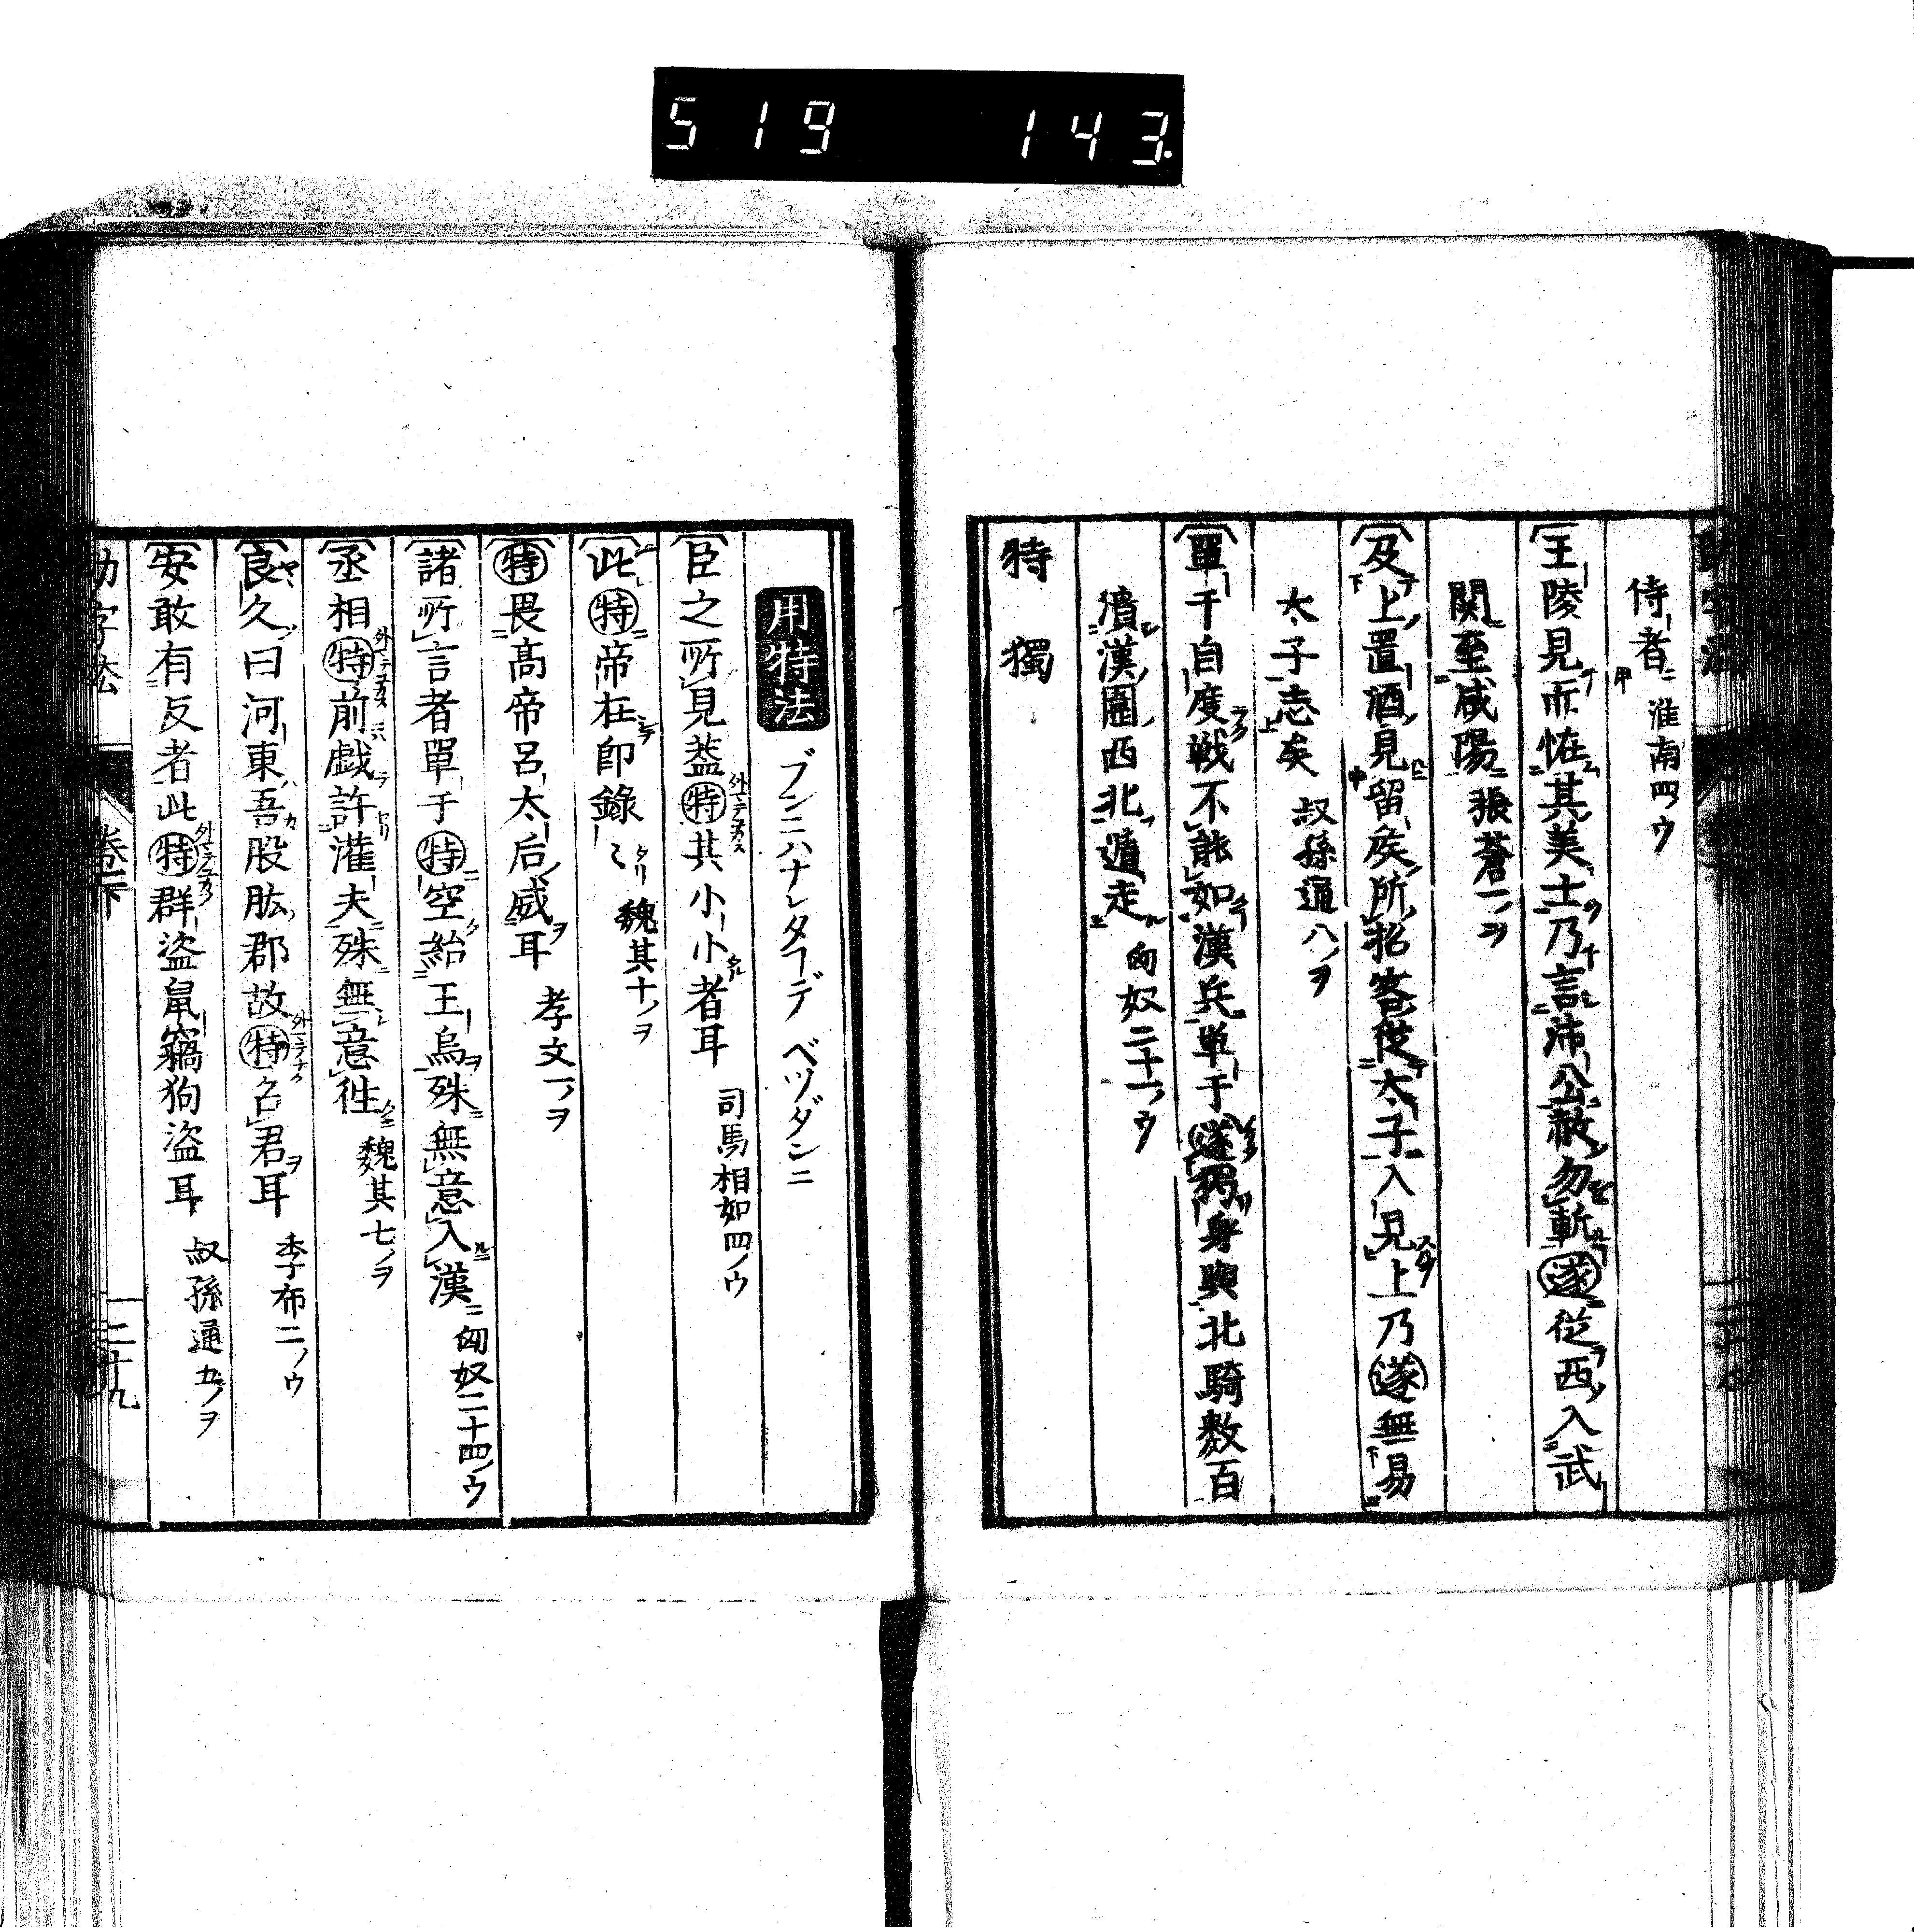 519 143.
侍者 淮南四ノウ
王陵見而恠其美士乃言沛公赦勿斬遂從西入武
関至咸陽 張蒼一ノヲ
及上置酒見留矦所招客從太子入見上乃遂無易
太子志矣 叔孫通八ノヲ
單于自度戦不能如漢兵単于遂獨身與壮騎数百
潰漢圍西北遁走 匈奴二十一ノウ
特 獨
用特法 ブンニハナレタコデ ベツダンニ
臣之所見葢特其小小者耳 司馬相如四ノウ
此特帝在即錄〻 魏其十ノヲ
特畏高帝呂太后威耳 孝文一ノヲ
諸所言者單于特空紿王烏殊無意入漢 匈奴二十四ノウ
丞相特前戯許灌夫殊無意徃 魏其七ノヲ
良久曰河東吾股肱郡故特召君耳 季布二ノウ
安敢有反者此特群盗鼠竊狗盗耳 叔孫通五ノヲ
助字法 卷下 二十九